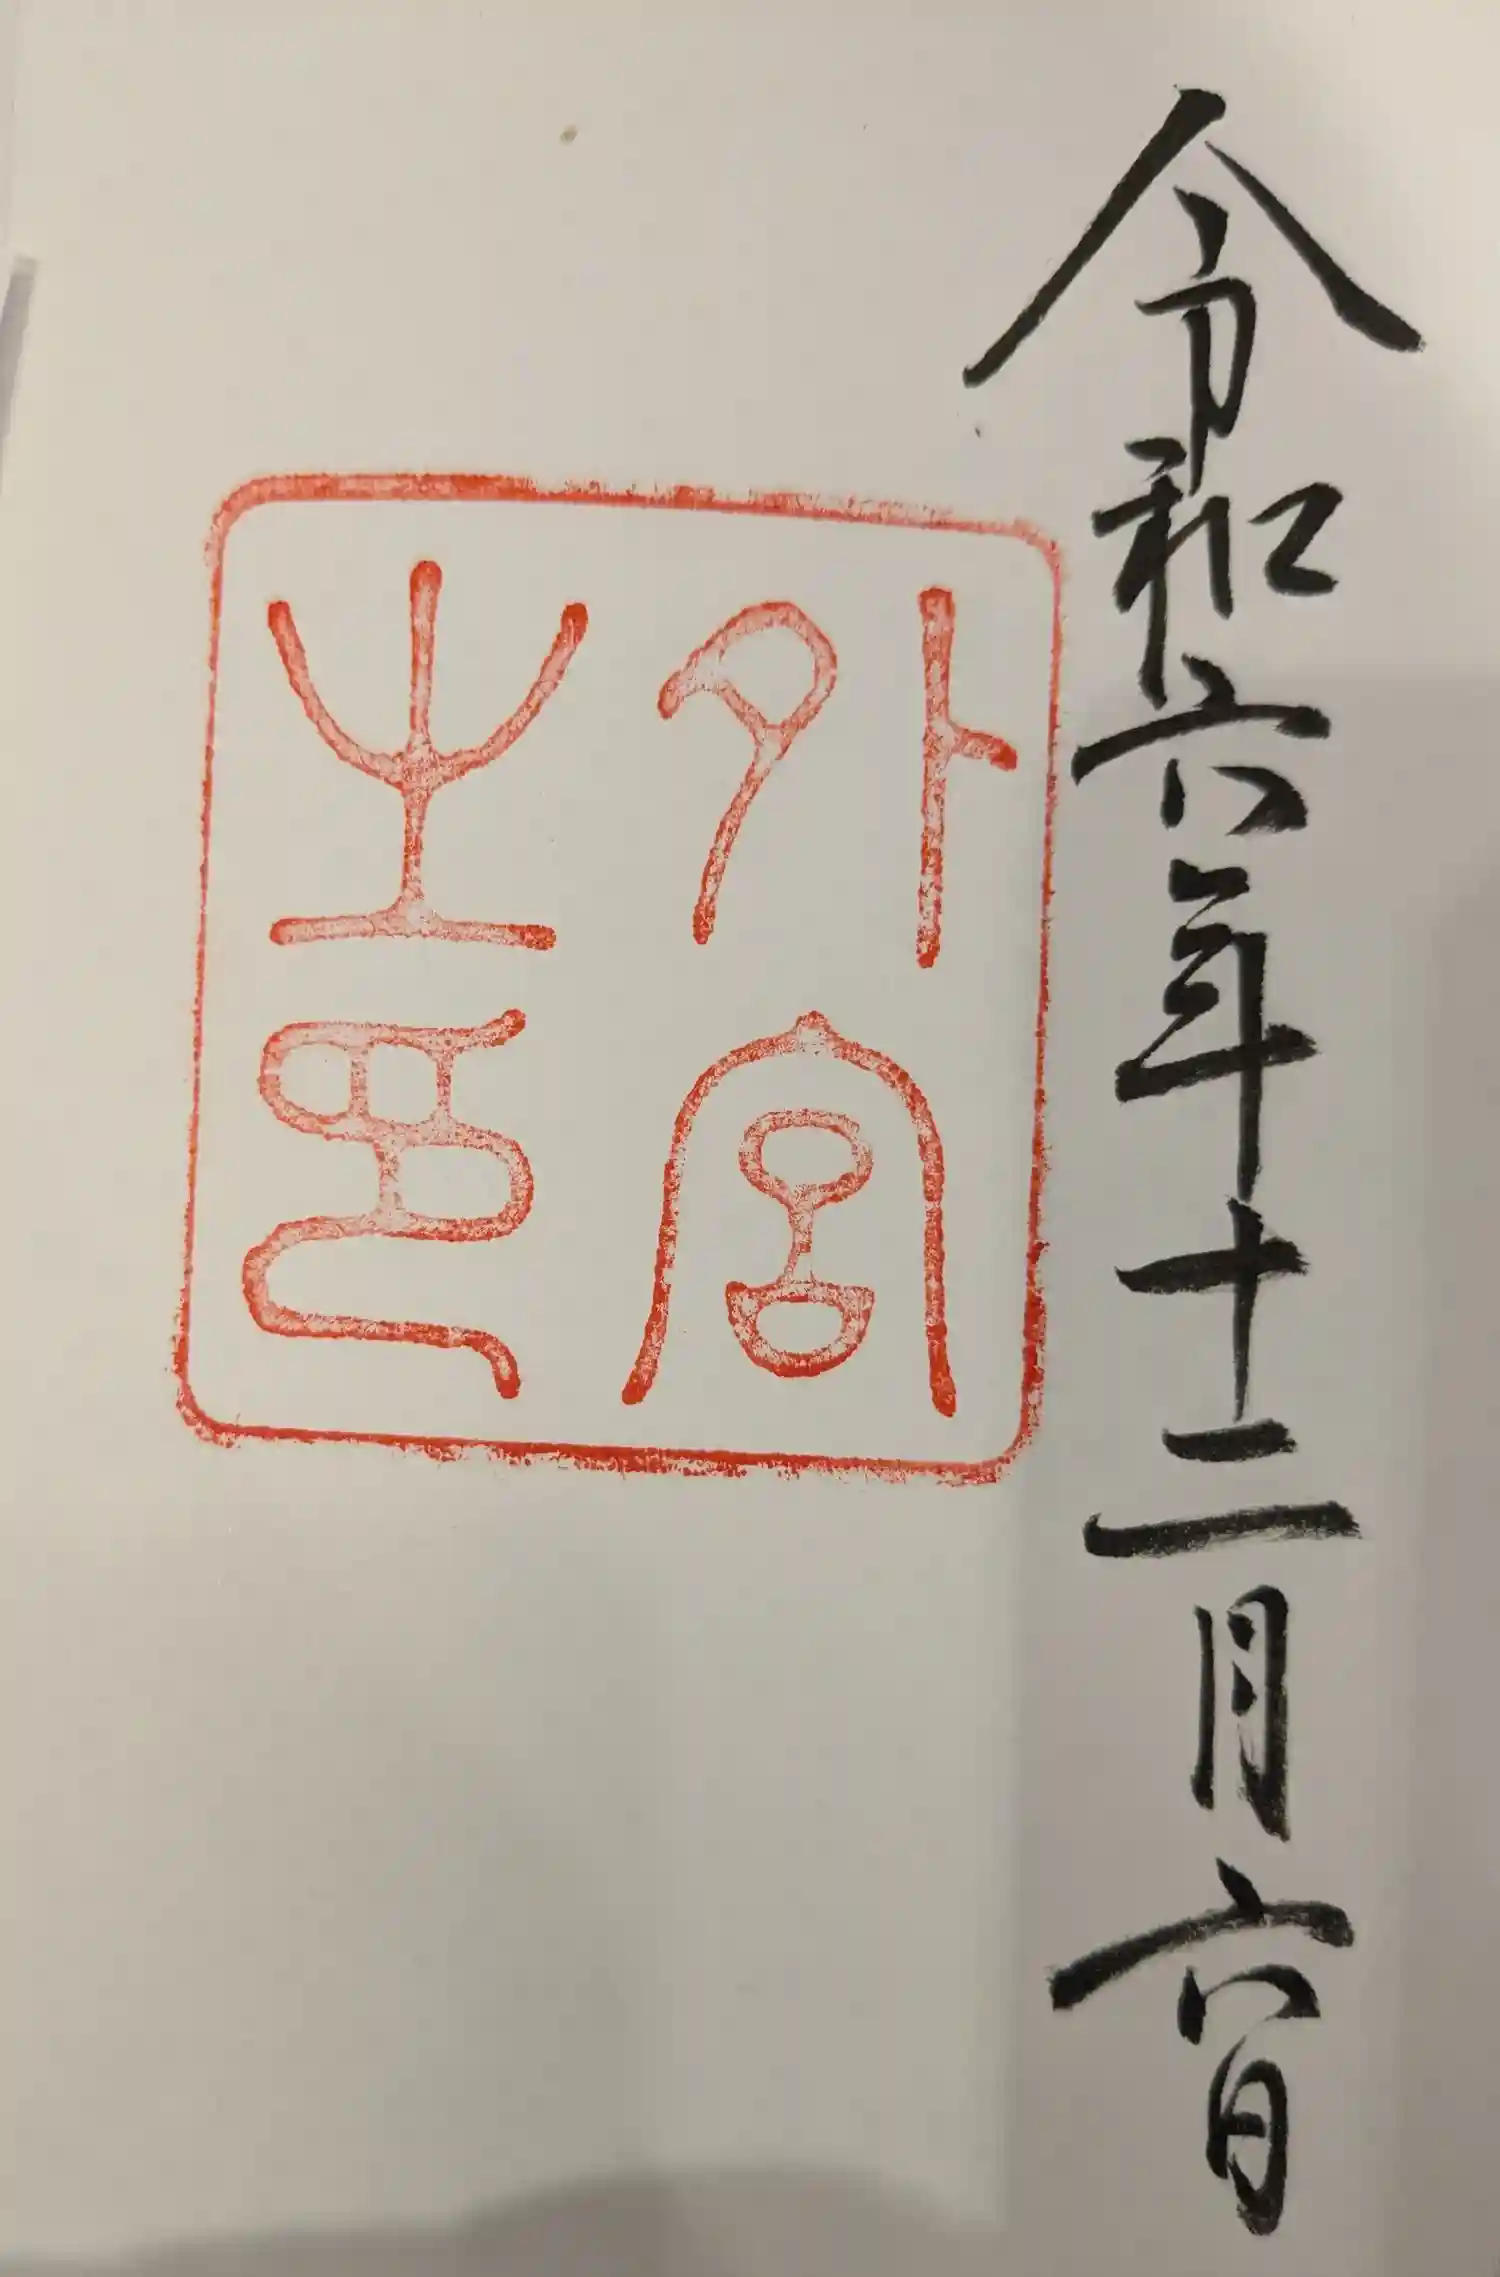 令和六年十二月六日
外宮
之印